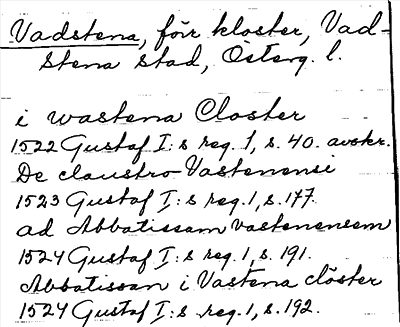 Vadstena, förr kloster, Vad-
stena stad, Österg. l.
i wastena Closter
1522 Gustaf I:s reg. 1, s. 40. avskr.
De claustro Vastenensi
1523 Gustaf I:s reg. 1, s. 177.
ad Abbatissam vastenensem
1524 Gustaf I:s reg. 1, s. 191.
Abbatissan i Vastena clöster
1524 Gustaf I:s reg. 1, s. 192.